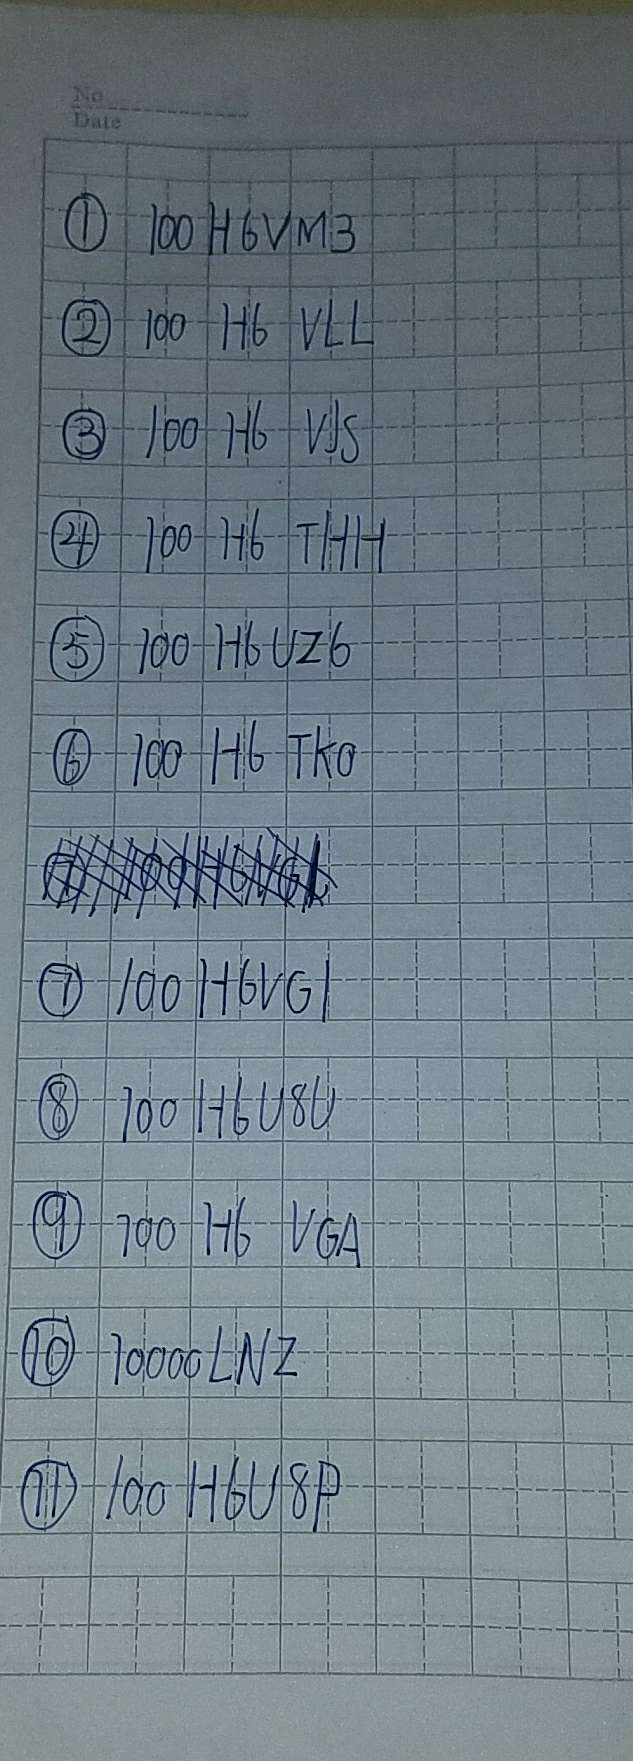 No
Date
① 100H6VM3
② 100 H6 VLL
③ 100 H6 VJS
④ 100 H6 THH
⑤ 100 H6UZ6
⑥ 100 H6 TKO
⑦ 100 H6VG1
⑧ 100 H6U8U
⑨ 100 H6 VGA
⑩ 10000LNZ
⑪ 100 H6U8P